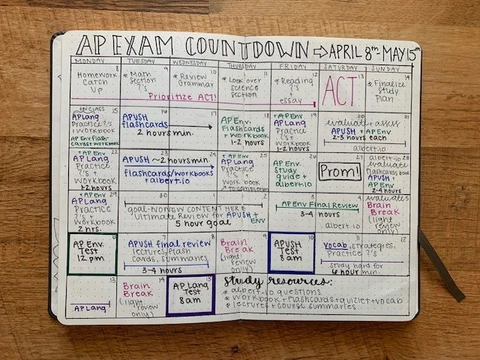 AP EXAM COUNTDOWN → APRIL 8th-MAY 15th
MONDAY TUESDAY WEDNESDAY THURSDAY FRIDAY SATURDAY SUNDAY
Homework
Catch
Up
* Math
Section
* Review
Grammar
* Look over
science
section
* Reading
?'s
+
essay
ACT
* Finalize
Study
Plan
Prioritize ACT!
IN CLASS
AP Lang
Practice
?'s +
workbook
AP Env Flash-
cards + workbook
APUSH
flashcards
2 hours min.
AP Env.
Flashcards
+ workbook
1-2 hours
* AP Lang
Practice
?'s +
workbook
1-2 hours
evaluate + assess
APUSH + AP Env
2-3 hours each
albert.io
+ AP Env
AP Lang
Practice
?'s +
Workbook
1-2 hours
APUSH ~2 hours min.
flashcards/workbooks
+ albert.io
* AP Lang
Practice
?'s +
workbook
AP Env.
study
guide +
albert.io
Prom!
albert.io
evaluate
flashcards
APUSH +
AP Env
2-4 hours
+ AP Env
AP Lang
Practice
?'s +
Workbook
2 hrs.
GOAL- NO NEW CONTENT HERE
Ultimate Review for APUSH +
ENV
5 hour goal
AP Env Final Review
3-4
hours
albert.io
evaluate
Brain
Break
(light
review
only)
AP Env.
Test
12 pm
APUSH final review
lectures, flash
cards, summaries
3-4 hours
Brain
Break
(light
review
only)
APUSH
Test
8am
Vocab, strategies,
Practice ?'s
study hard for
4 hour min.
AP Lang
Brain
Break
(light
review
only)
AP Lang
Test
8am
Study resources:
* albert.io questions
* workbook + flashcards + quizlet + vocab
* lectures + course summaries